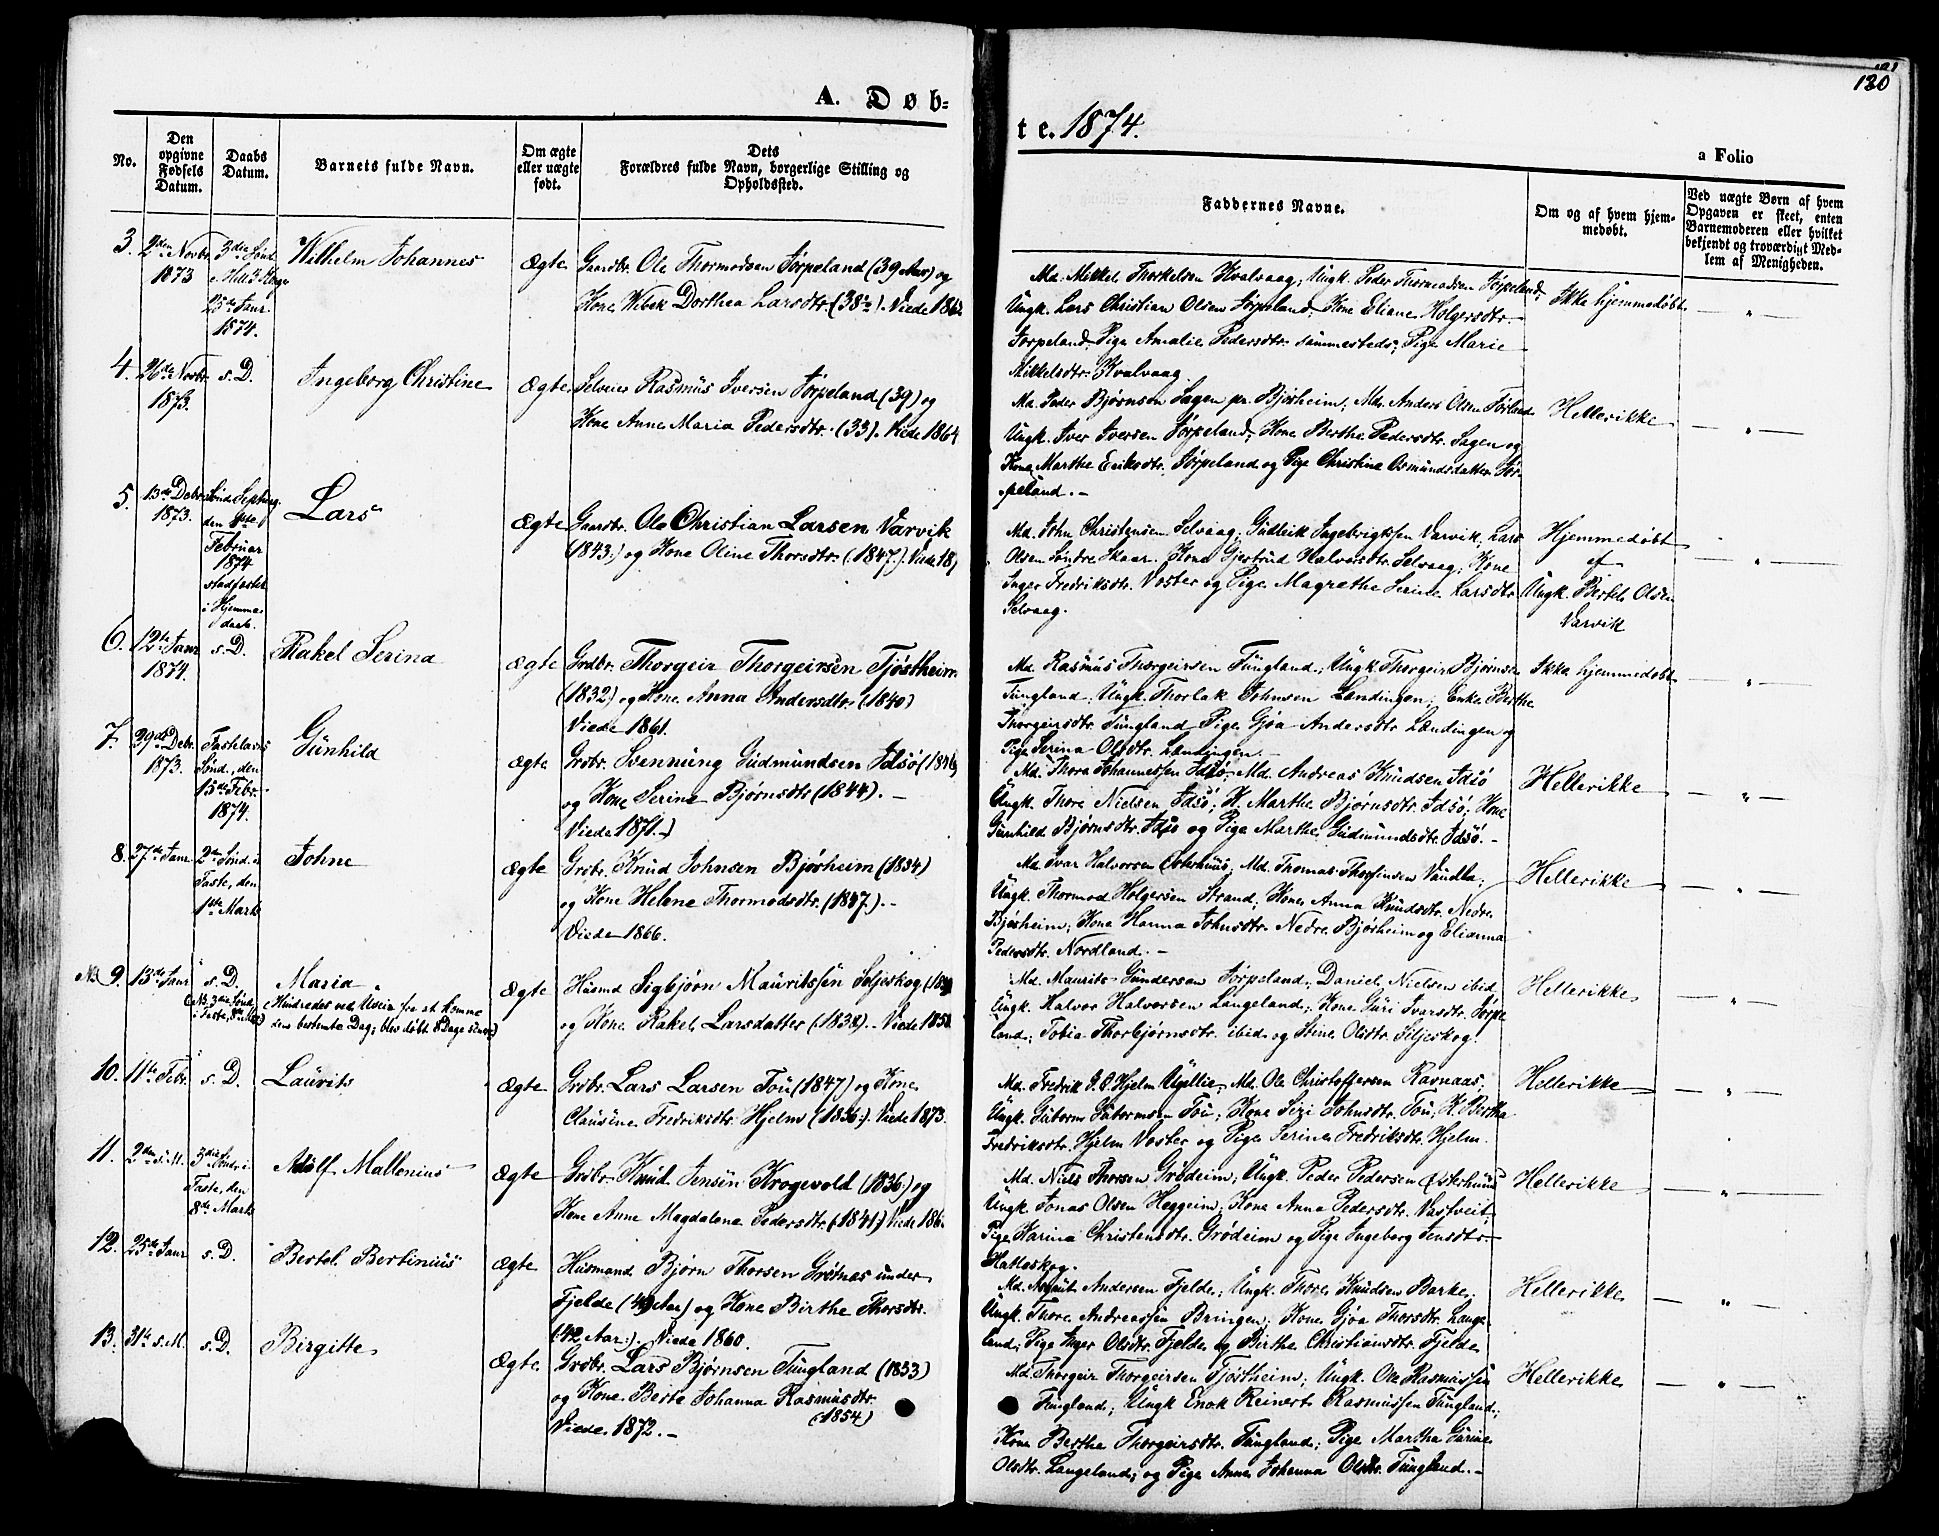 120
A. Døb-
te. 1874.
a Folio
No.
Den opgivne Fødsels Datum.
Daabs Datum.
Barnets fulde Navn.
Om ægte eller uægte født.
Dets Forældres fulde Navn, borgerlige Stilling og Opholdssted.
Faddernes Navne.
Om og af hvem hjemmedøbt.
Ved uægte Børn af hvem Opgaven er skeet, enten Barnemoderen eller hvilket bekjendt og troværdigt Medlem af Menigheden.
3. 2den Novbr. 1873
3die Sønd. e. Hell. 3 Konger 25de Janr. 1874.
Wilhelm Johannes
Ægte
Gaardbr. Ole Thormodsen Jørpeland (39 Aar) og
Kone Wibek Dorthea Larsdtr. (38). Viede
Md. Mikkel Thorkelsen Kvalvaag; Ungk. Peder Thormodsen Jørpeland;
Ungk. Lars Christian Olsen Jørpeland; Kone Eliane Holgersdtr.
Jørpeland; Pige Amalie Pedersdtr. sammesteds; Pige Marie
Mikkelsdtr. Kvalvaag
Ikke hjemmedøbt
4. 26de Novbr. 1873.
s. D.
Ingeborg Christine
Ægte
Selveier Rasmus Iversen Jørpeland (39) og
Kone Anne Maria Pedersdtr. (33). Viede 1864
Md. Peder Bjørnsen Sagen pr. Bjørheim; Md. Anders Olsen Førland
Ungk. Iver Iversen Jørpeland; Kone Berthe Pedersdtr. Sagen og
Kone Marthe Eriksdtr. Jørpeland og Pige Christine Osmundsdatter Jør-
peland. -
Hellerikke
5. 13de Debr. 1873.
Sønd. Septuag. den 1ste Februar 1874 stadfæstet i Hjemmedaab.
Lars
Ægte
Gaardbr. Ole Christian Larsen Varvik
(1843) og Kone Oline Thorsdtr. (1847). Viede 18
Md. John Christensen Selvaag; Gudleik Ingebrigtsen Varvik; Lars
Olsen Søndre Skaar. Kone Gjertrud Halvorsdtr. Selvaag; Kone
Inger Fredriksdtr. Voster og Pige Magrethe Serine Larsdtr.
Selvaag.
Hjemmedøbt
af
Ungk. Bertel Olsen
Varvik
6. 12te Janr. 1874.
s. D.
Rakel Serina
Ægte
Grdbr. Thorgeir Thorgeirsen Tjøstheim
(1832) og Kone Anna Andersdtr. (1840)
Viede 1861.
Md. Rasmus Thorgeirsen Tungland; Ungk. Thorgeir Bjørnsen
Tungland; Ungk. Thorlak Johnsen Lendingen; Enke Berthe
Thorgeirsdtr. Tungland Pige Gjøa Andersdtr. Lændingen og
Pige Serina Olsdtr. Lændingen. -
Ikke hjemmedøbt
7. 29de Debr. 1873.
Fastelavns Sønd., den 15de Febr. 1874.
Gunhild
Ægte
Grdbr. Svennung Gudmundsen Idsø (1846)
og Kone Serine Bjørnsdtr. (1844). -
Viede 1871. -
Md. Thore Johannessen Idsø, Md. Andreas Knudsen Idsø
Ungk. Thore Nielsen Idsø; K. Marthe Bjørnsdtr. Idsø; Kone
Gunhild Bjørnsdtr. Idsø og Pige Marthe Gudmundsdtr. Idsø. -
Hellerikke
8. 27de Janr.
2den Sønd. i Faste, den 1ste Marts
Johne
Ægte
Grdbr. Knud Johnsen Bjørheim (1834)
og Kone Helene Thormodsdtr. (1837). -
Viede 1866.
Md. Ivar Halvorsen Østerhuus; Md. Thomas Thorfinsen Vaula;
Ungk. Thormod Holgersen Strand; Kone Anna Knudsdtr. Nedre
Bjørheim; Kone Hanna Johnsdtr. Nedre Bjørheim og Elianna
Pedersdtr. Nordland. -
Hellerikke
NB 9. 13de Janr.
s. D.
(NB. 3die Sønd. i Faste, 8de Marts)
Maria
(Hindredes ved Uveir fra at komme
den bestemte Dag; blev døbt 8 Dage senere)
Ægte
Husmd. Sigbjørn Mauritssen Seljeskog
og Kone Rakel Larsdatter (1832). - Viede 1858
Md. Maurits Gundersen Jørpeland; Daniel Nielsen ibid
Ungk. Halvor Halvorsen Langeland; Kone Guri Ivarsdtr. Jørpe
land; Tobia Thorbjørnsdtr. ibid og Stine Olsdtr. Siljeskog.
Hellerikke
10. 11te Febr.
s. D.
Laurits
Ægte
Grdbr. Lars Larsen Tou (1847) og Kone
Clausine Fredriksdtr. Hjelm (1836). Viede 1873.
Md. Fredrik P. P. Hjelm Ugllie; Md. Ole Christoffersen Ravnaas;
Ungk. Guttorm Guttormsen Tou; Kone Siri Johnsdtr. Tou; K. Bertha
Fredriksdtr. Hjelm Voster og Pige Serine Fredriksdtr. Hjelm.
Hellerikke
11. 2den s. M.
3die Sønd. i Faste, den 8de Marts
Adolf Mallenius
Ægte
Grdbr. Knud Jensen Krogevold (1836) og
Kone Anne Magdalene Pedersdtr. (1841) Viede
Md. Niels Thorsen Grødeim; Ungk. Peder Pedersen Østerhuus
Ungk. Jonas Olsen Heggeim; Kone Anna Pedersdtr. Vastveit;
Pige Karina Christensdtr. Grødeim og Pige Ingeborg Jensdtr.
Hatleskog.
Hellerikke
12. 25de Janr.
s. D.
Bertel Bertinius
Ægte
Husmand Bjørn Thorsen Grøtnæs under
Fjelde (49 Aar) og Kone Birthe Thorsdtr.
(42 Aar). Viede 1860.
Md. Asmut Andersen Fjelde; Ungk. Thore Knudsen Barke;
Ungk. Thore Andreassen Bringen; Kone Gjøa Thorsdtr. Lange
land; Pige Inger Olsdtr. Fjelde og Birthe Christiansdtr. Fjelde
Hellerikke
13. 31te s. M.
s. D.
Birgitte
Ægte
Grdbr. Lars Bjørnsen Tungland (1853)
og Kone Berte Johanna Rasmusdtr.
(1854)
Viede 1872. -
Md. Thorgeir Thorgeirsen Tjøstheim; Ungk. Ole Rasmussen
Tungland; Ungk Enok Reinert Rasmussen Tungland;
Kone Berthe Thorgeirsdtr. Tungland; Pige Martha Gurine
Olsdtr. Langeland; og Pige Anne Johanna Olsdtr. Tungland. -
Hellerikke